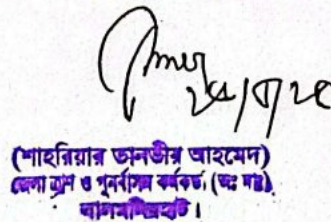 ২৫/৫/২৫
(শাহরিয়ার তানভীর আহমেদ)
জেলা ত্রাণ ও পুনর্বাসন কর্মকর্তা (অঃ দাঃ)
লালমনিরহাট।